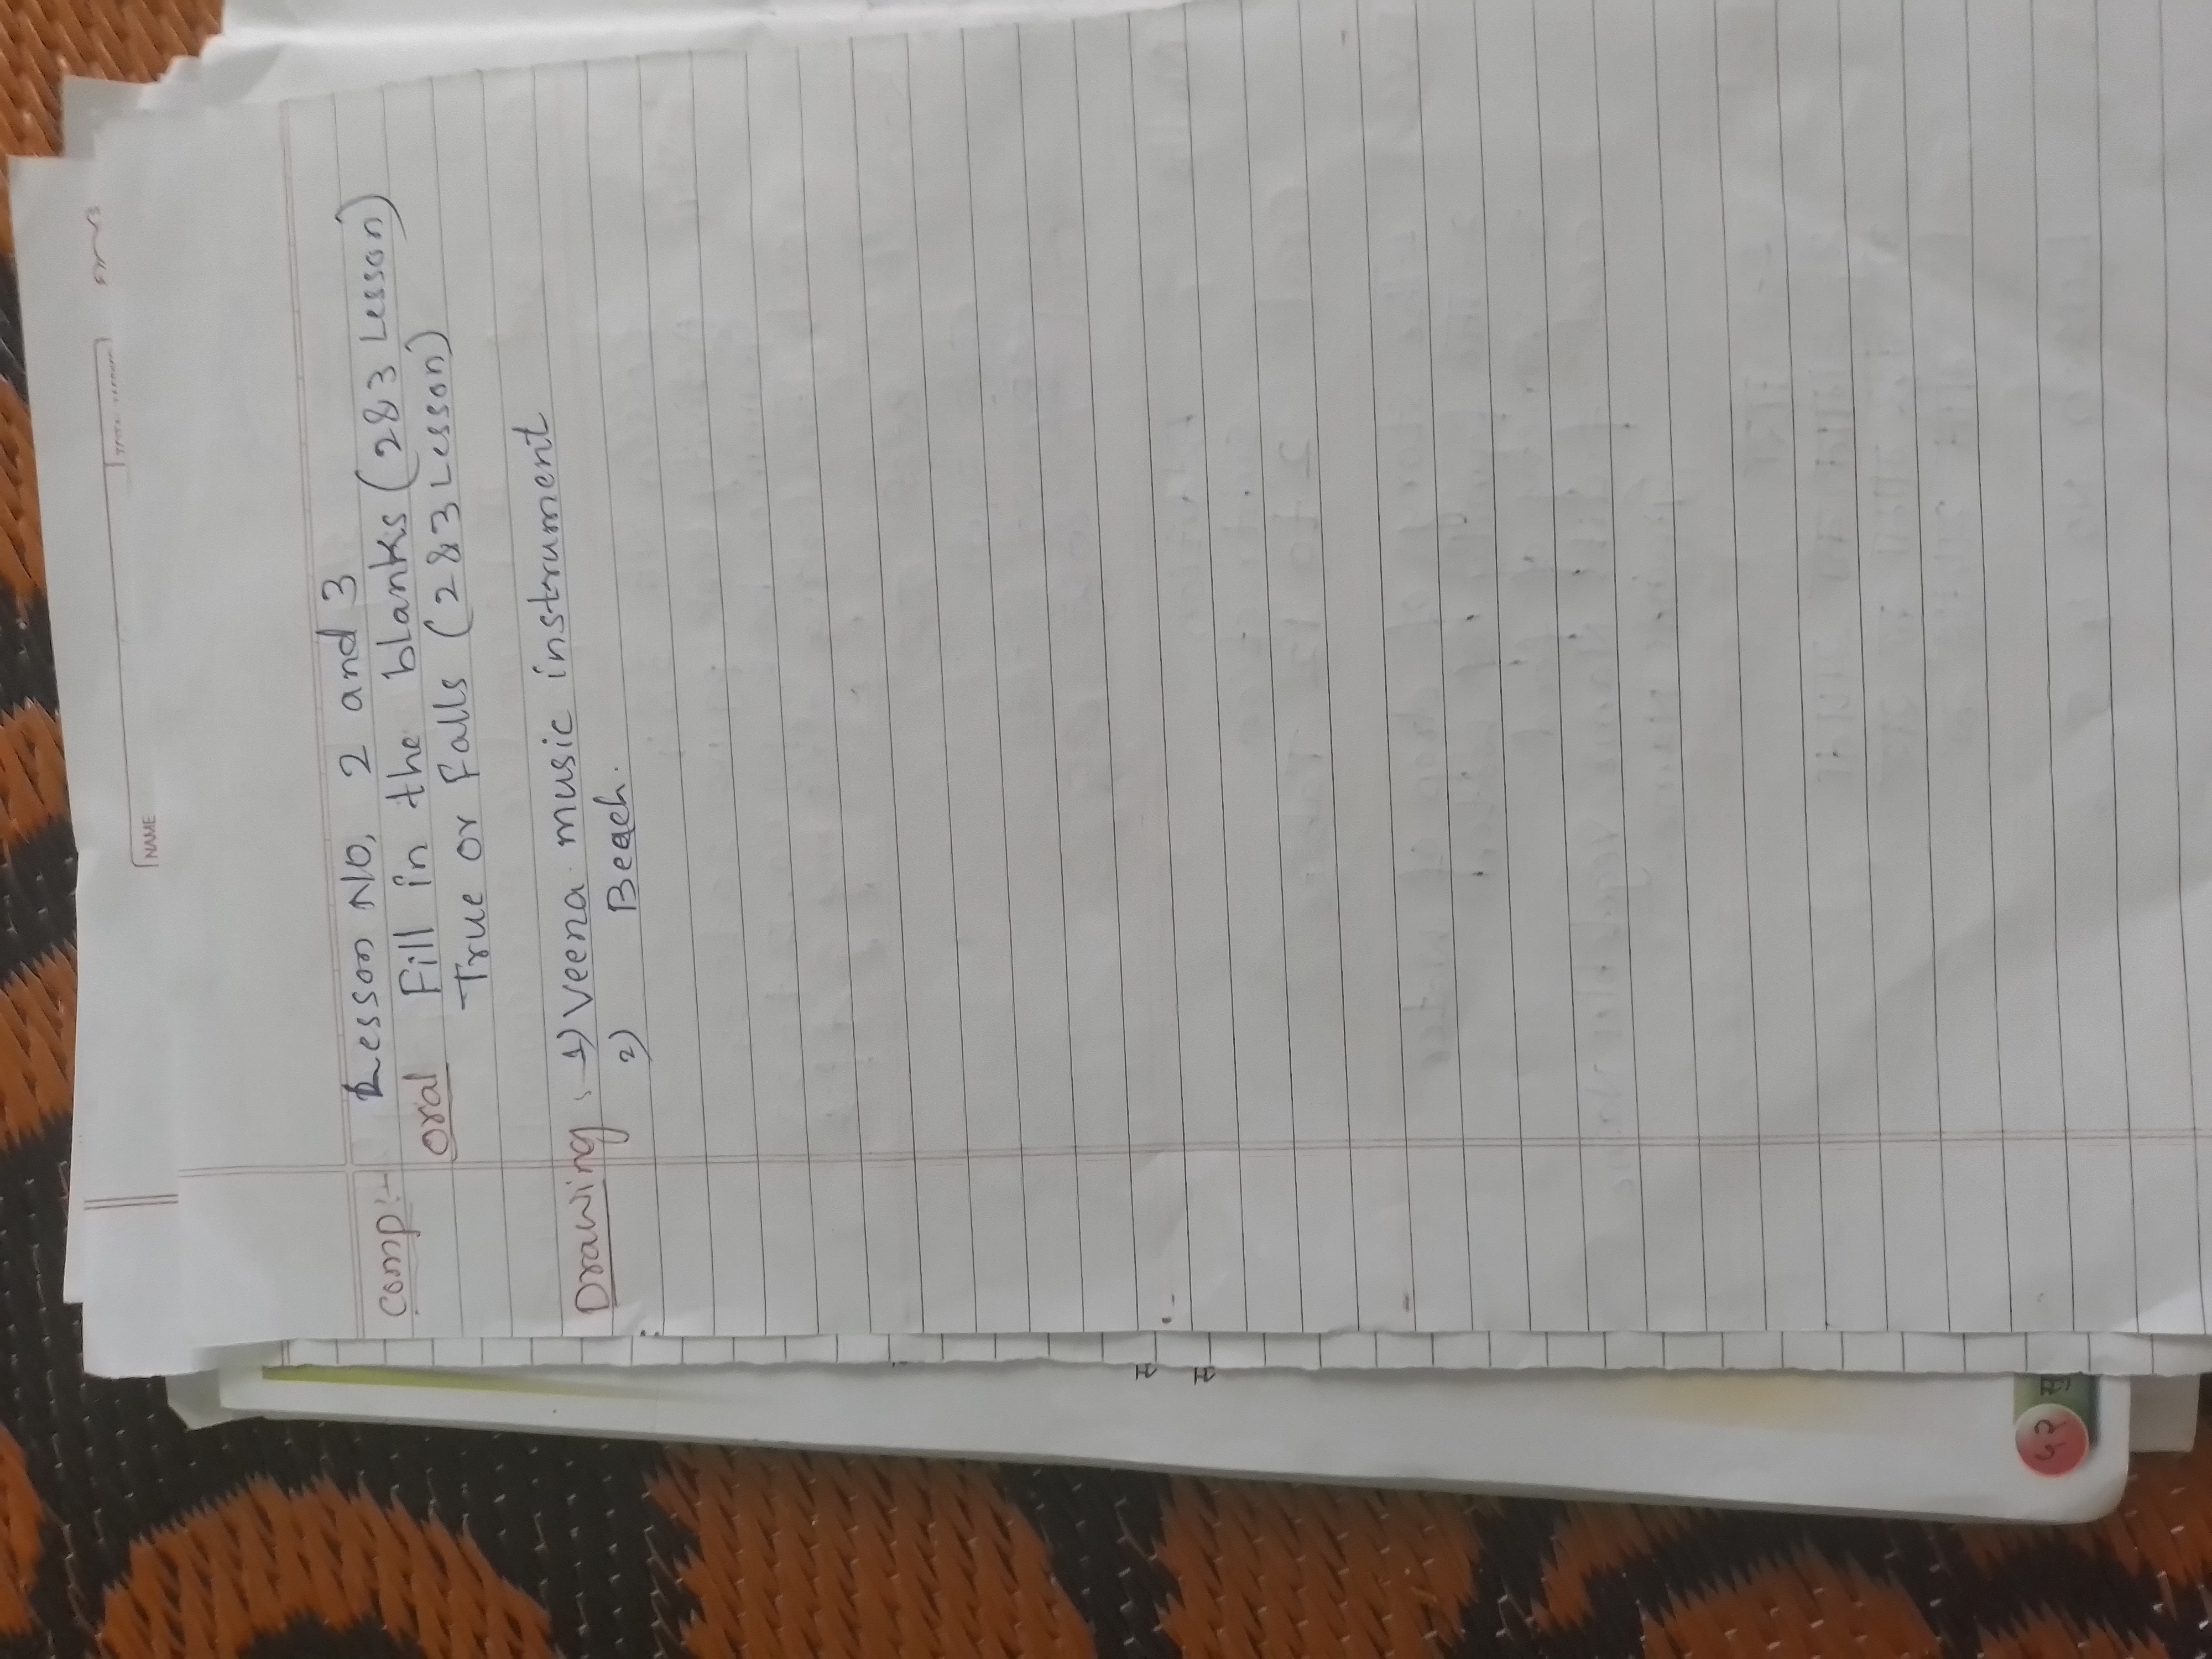 NAME
Comp:- Lesson No, 2 and 3
Oral Fill in the blanks (2&3 Lesson)
True or Falls (2&3 Lesson)
Drawing :- 1) Veena music instrument
2) Beach.